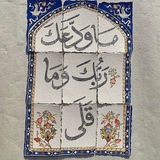 ما ودعك
ربك وما
قلى